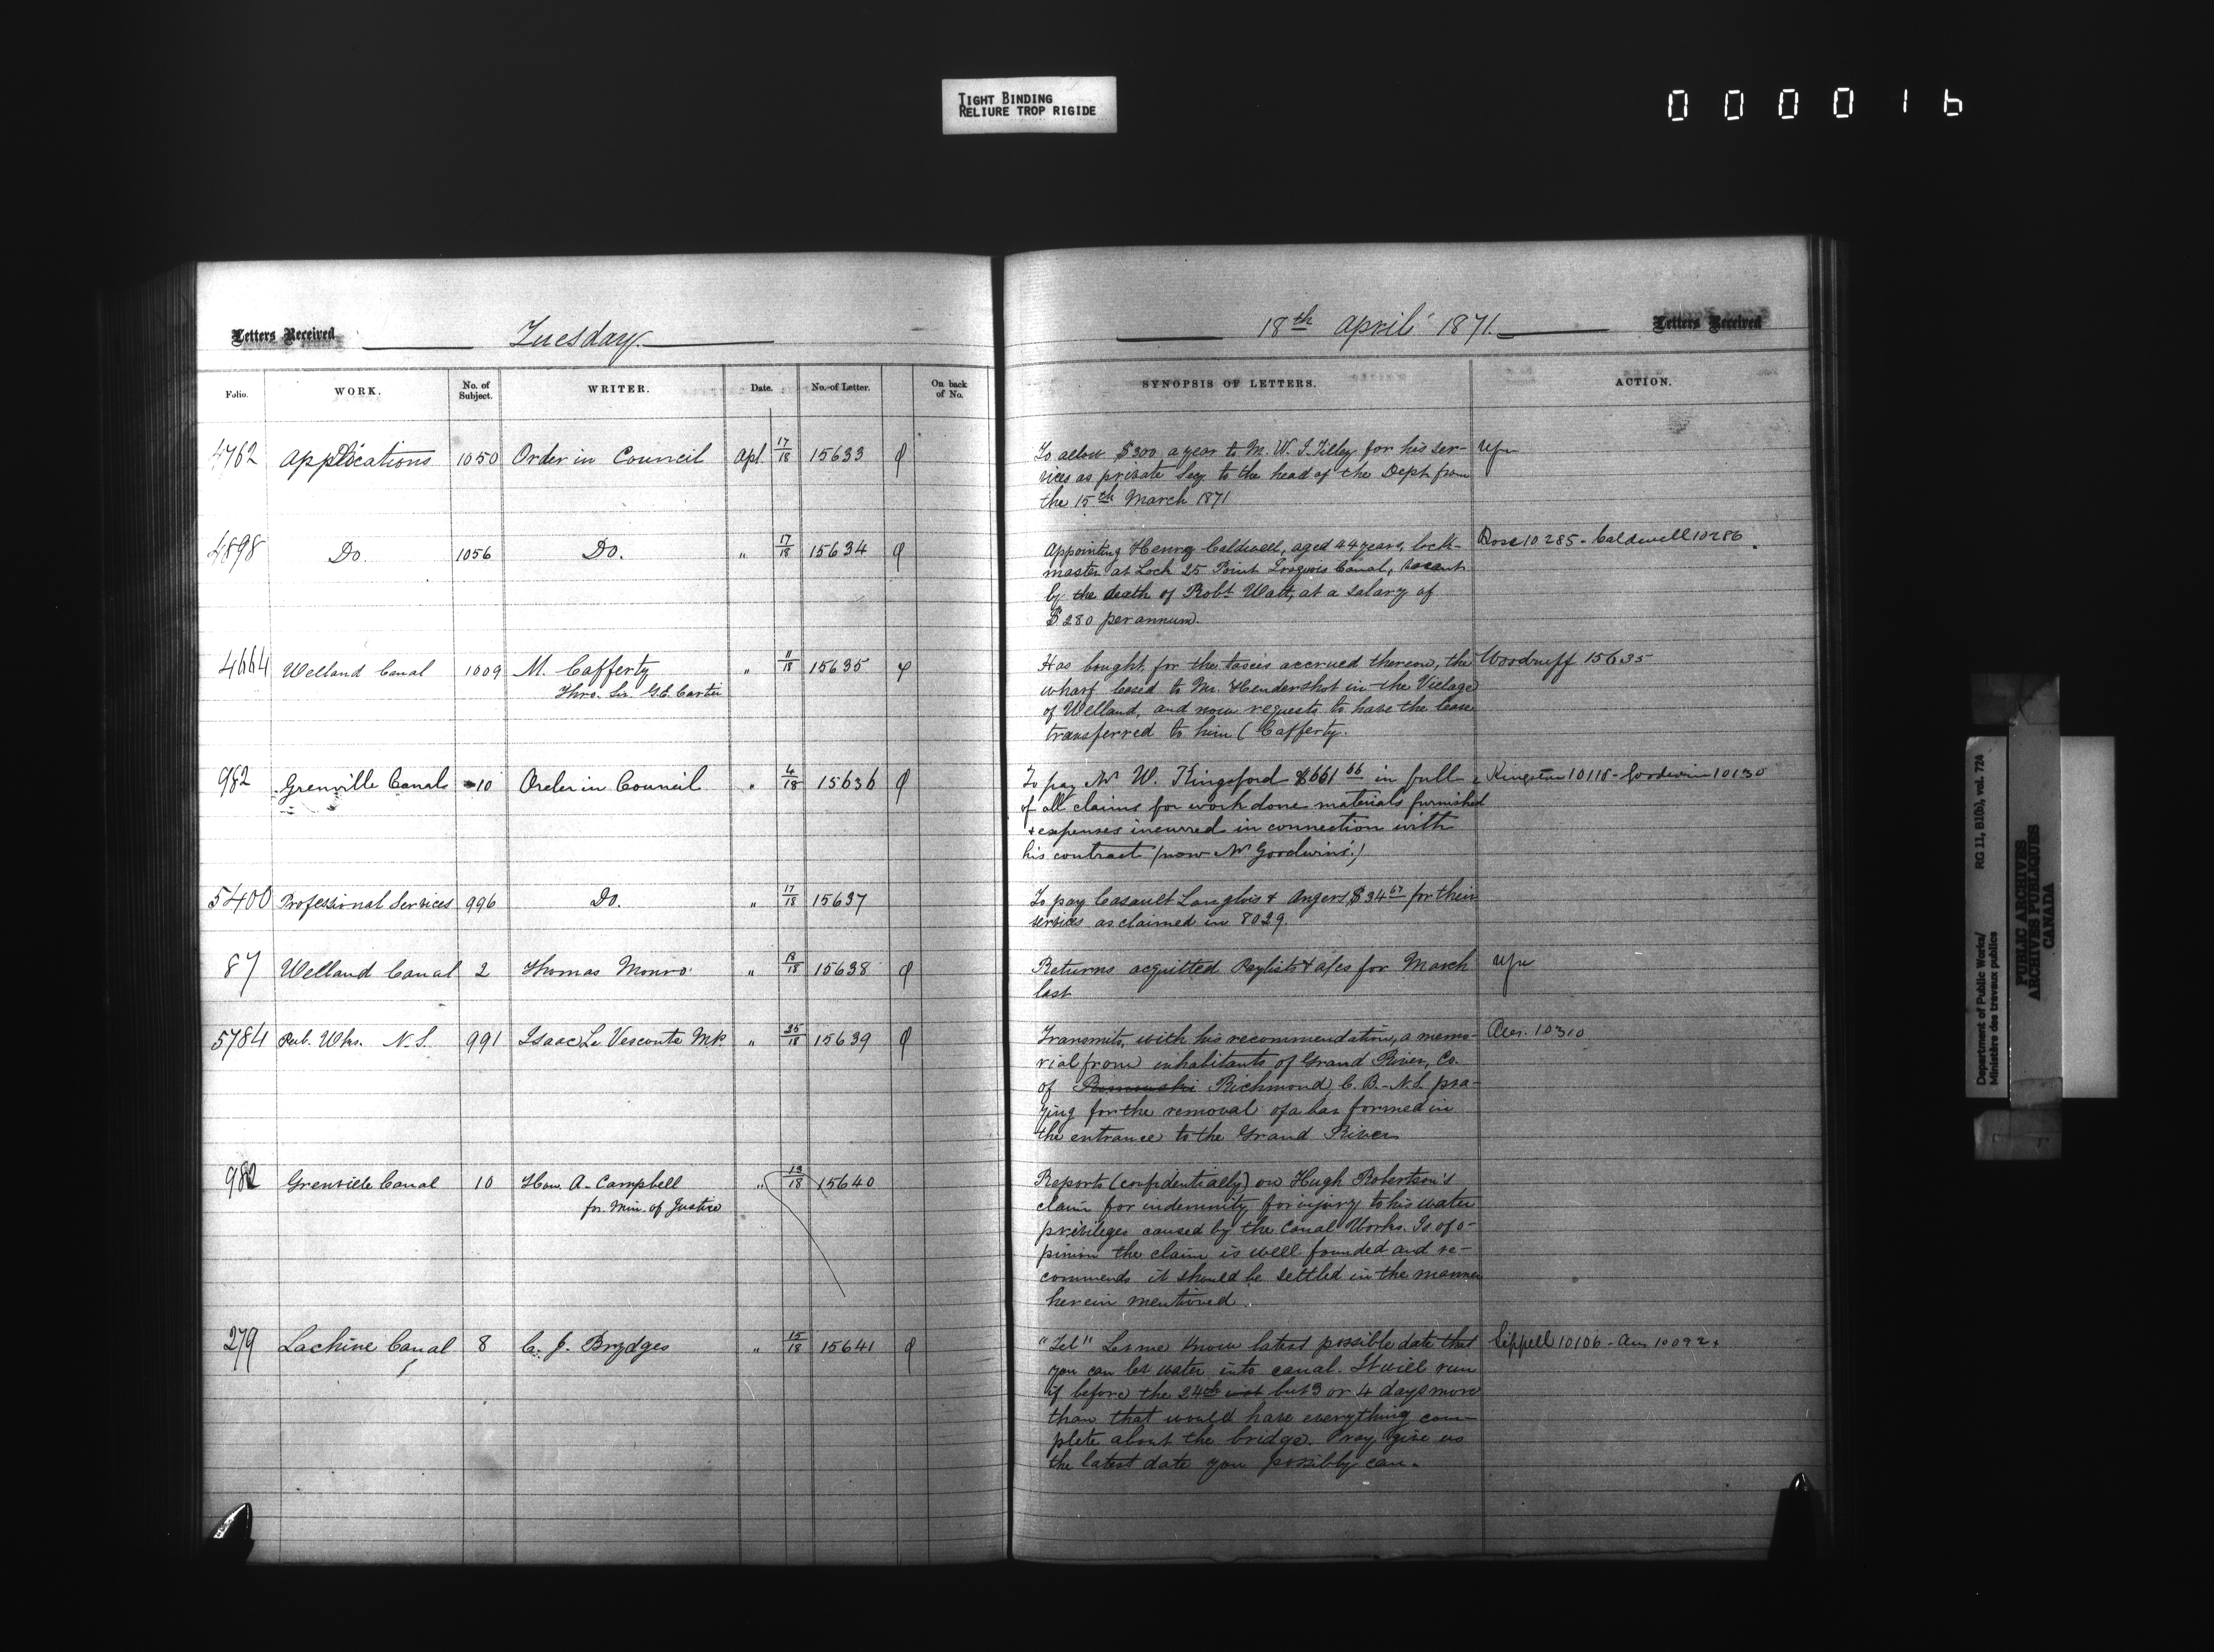 TIGHT BINDING
RELIURE TROP RIGIDE
0 0 0 0 1 6
Letters Received Tuesday
Folio. WORK. No. of Subject. WRITER. Date. No. of Letter. On back of No.
4762 Applications 1050 Order in Council Apl 17/18 15633
4898 Do. 1056 Do. " 17/18 15634
4664 Welland Canal 1009 M. Cafferty " 11/18 15635
Thro. Sir G.E. Cartier
982 Grenville Canal 10 Order in Council " 4/18 15636
5400 Professional Services 996 Do. " 17/18 15637
87 Welland Canal 2 Thomas Monro " 13/18 15638
5784 Pub. Wks. N.S. 991 Isaac Le Vesconte M.P. " 25/18 15639
982 Grenville Canal 10 Hon. A. Campbell " 13/18 15640
for Min. of Justice
279 Lachine Canal 8 C. J. Brydges " 15/18 15641
18th April 1871. Letters Received
SYNOPSIS OF LETTERS. ACTION.
To allow $300 a year to M. W. I. Tilley for his ser-
vices as private Secy to the head of the Dept from
the 15th March 1871
Appointing Henry Caldwell, aged 44 years, lock- Rose 10285 - Caldwell 10286
master at Lock 25 Point Iroquois Canal, vacant
by the death of Robt Watt, at a salary of
$280 per annum.
Has bought, for the taxes accrued thereon, the Woodruff 15635
wharf leased to Mr. Hendershot in the Village
of Welland, and now requests to have the lease
transferred to him (Cafferty.
To pay Mr W. Kingsford $661 66 in full Kingston 10115 - Goodwin 10130
of all claims for work done materials furnished
& expenses incurred in connection with
his contract (now Mr Goodwin's.)
To pay Casault Langlois & Angers $34 67 for their
services as claimed in 8029.
Returns acquitted Paylists & a/cs for March
last
Transmits, with his recommendation, a memo- Ans. 10310
rial from inhabitants of Grand River, Co.
of Richmond C. B. - N.S. pra-
ying for the removal of a bar formed in
the entrance to the Grand River
Reports (confidentially) on Hugh Robertson's
claim for indemnity for injury to his water
privileges caused by the Canal Works. Is of o-
pinion the claim is well founded and re-
commends it should be settled in the manner
herein mentioned.
"Tel" Let me know latest possible date that Sippell 10106 - Ans 10092
you can let water into canal. It will run
if before the 24th inst but 3 or 4 days more
than that would have everything com-
plete about the bridge. Pray give us
the latest date you possibly can.
Department of Public Works/ RG 11, B1(b), vol. 724
Ministère des travaux publics
PUBLIC ARCHIVES
ARCHIVES PUBLIQUES
CANADA